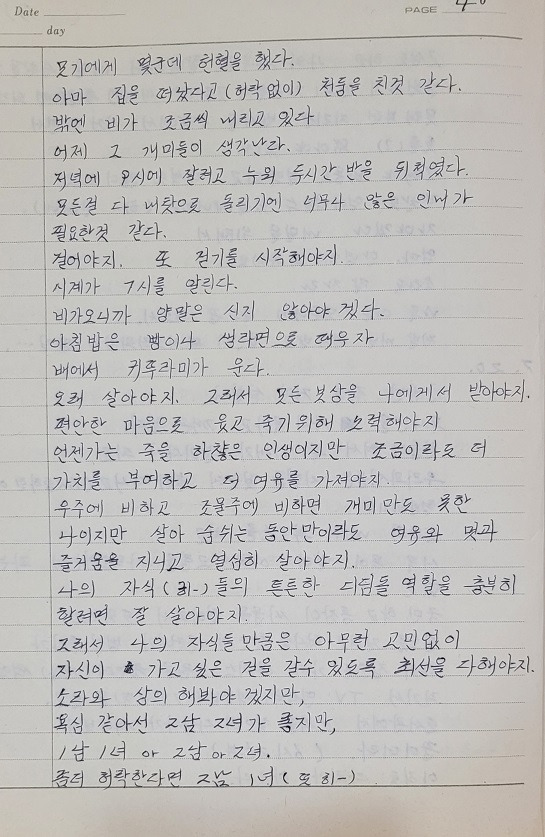 Date
PAGE 4
day
모기에게 몇군데 헌혈을 했다.
아마 집을 떠났다고 (허락없이) 천둥을 친것 같다.
밖엔 비가 조금씩 내리고 있다
어제 그 개미들이 생각난다.
저녁에 9시에 잘려고 누워 두시간 반을 뒤척였다.
모든걸 다 내탓으로 돌리기엔 너무나 많은 인내가
필요한것 같다.
걸어야지. 또 걷기를 시작해야지.
시계가 7시를 알린다.
비가오니까 양말은 신지 않아야 겠다.
아침밥은 빵이나 생라면으로 때우자
배에서 귀뚜라미가 운다.
오래 살아야지. 그래서 모든 보상을 나에게서 받아야지.
편안한 마음으로 웃고 죽기위해 노력해야지
언젠가는 죽을 하찮은 인생이지만 조금이라도 더
가치를 부여하고 더 여유를 가져야지.
우주에 비하고 조물주에 비하면 개미만도 못한
나이지만 살아 숨쉬는 동안만이라도 여유와 멋과
즐거움을 지니고 열심히 살아야지.
나의 자식(히~)들의 튼튼한 디딤돌 역할을 충분히
할려면 잘 살아야지.
그래서 나의 자식들만큼은 아무런 고민없이
자신이 가고 싶은 길을 갈수 있도록 최선을 다해야지.
소라와 상의 해봐야 겠지만,
욕심 같아선 2남 2녀가 좋지만,
1남 1녀 or 2남 or 2녀.
좀더 허락한다면 2남 1녀 (또 히~)